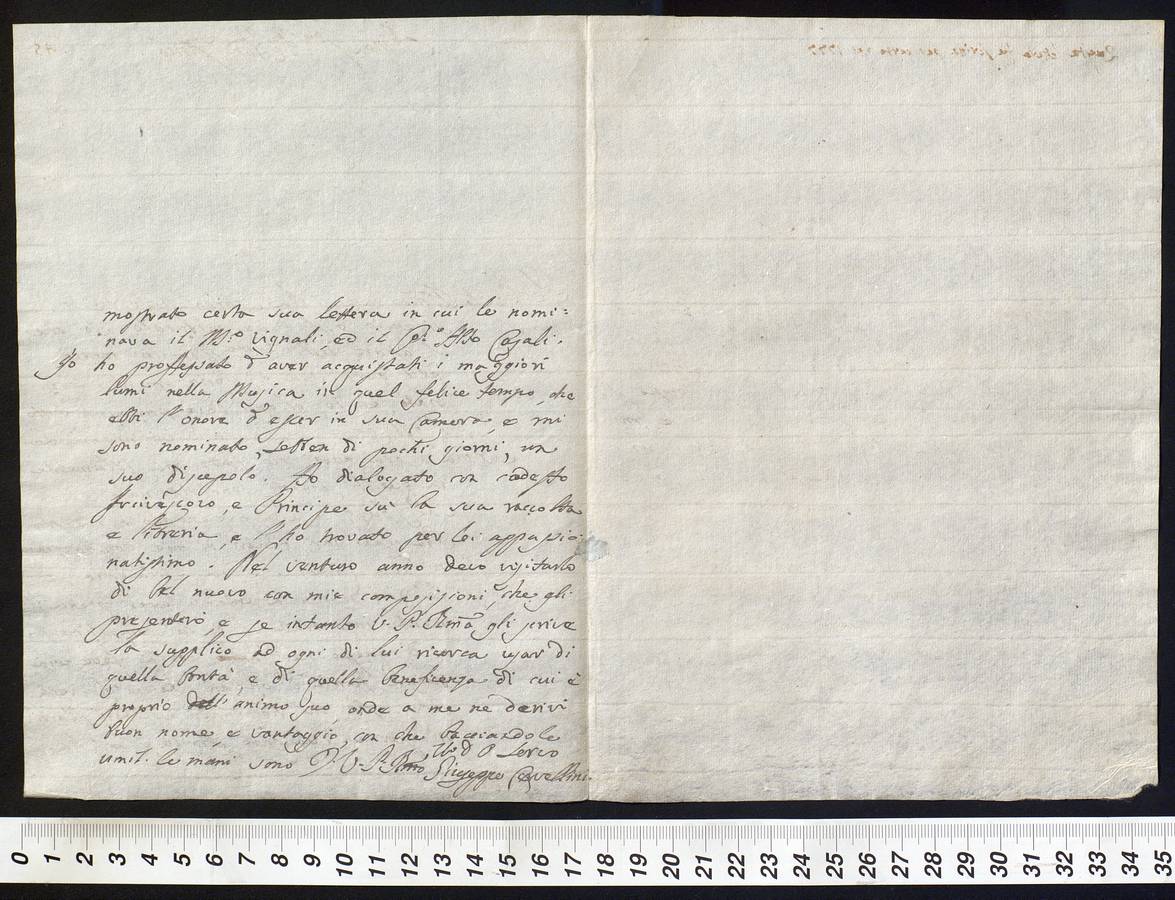 mostrato certa sua lettera in cui le nomi=
nava il M.ro Vignali, ed il Co: Abb.o Casali.
Io ho professato d'aver acquistati i maggiori
lumi nella Musica in quel felice tempo, che
ebbi l'onore d'esser in sua Camera, e mi
sono nominato, sebben di pochi giorni, un
suo discepolo. Ho dialogato con codesto
Arcivescovo, e Principe sù la sua raccolta
e libreria, e l'ho trovato per lei appassio=
natissimo. Nel venturo anno devo visitarlo
di bel nuovo con mie composizioni, che gli
presenterò, e se intanto V. P. Rma gli scrive
la supplico ad ogni di lui ricerca usar di
quella bontà, e di quella beneficenza di cui è
proprio dell'animo suo onde a me ne derivi
buon nome, e vantaggio, con che bacciandole
umil. le mani sono D. V. P. Rma
Giuseppe Cervellini
0 1 2 3 4 5 6 7 8 9 10 11 12 13 14 15 16 17 18 19 20 21 22 23 24 25 26 27 28 29 30 31 32 33 34 35